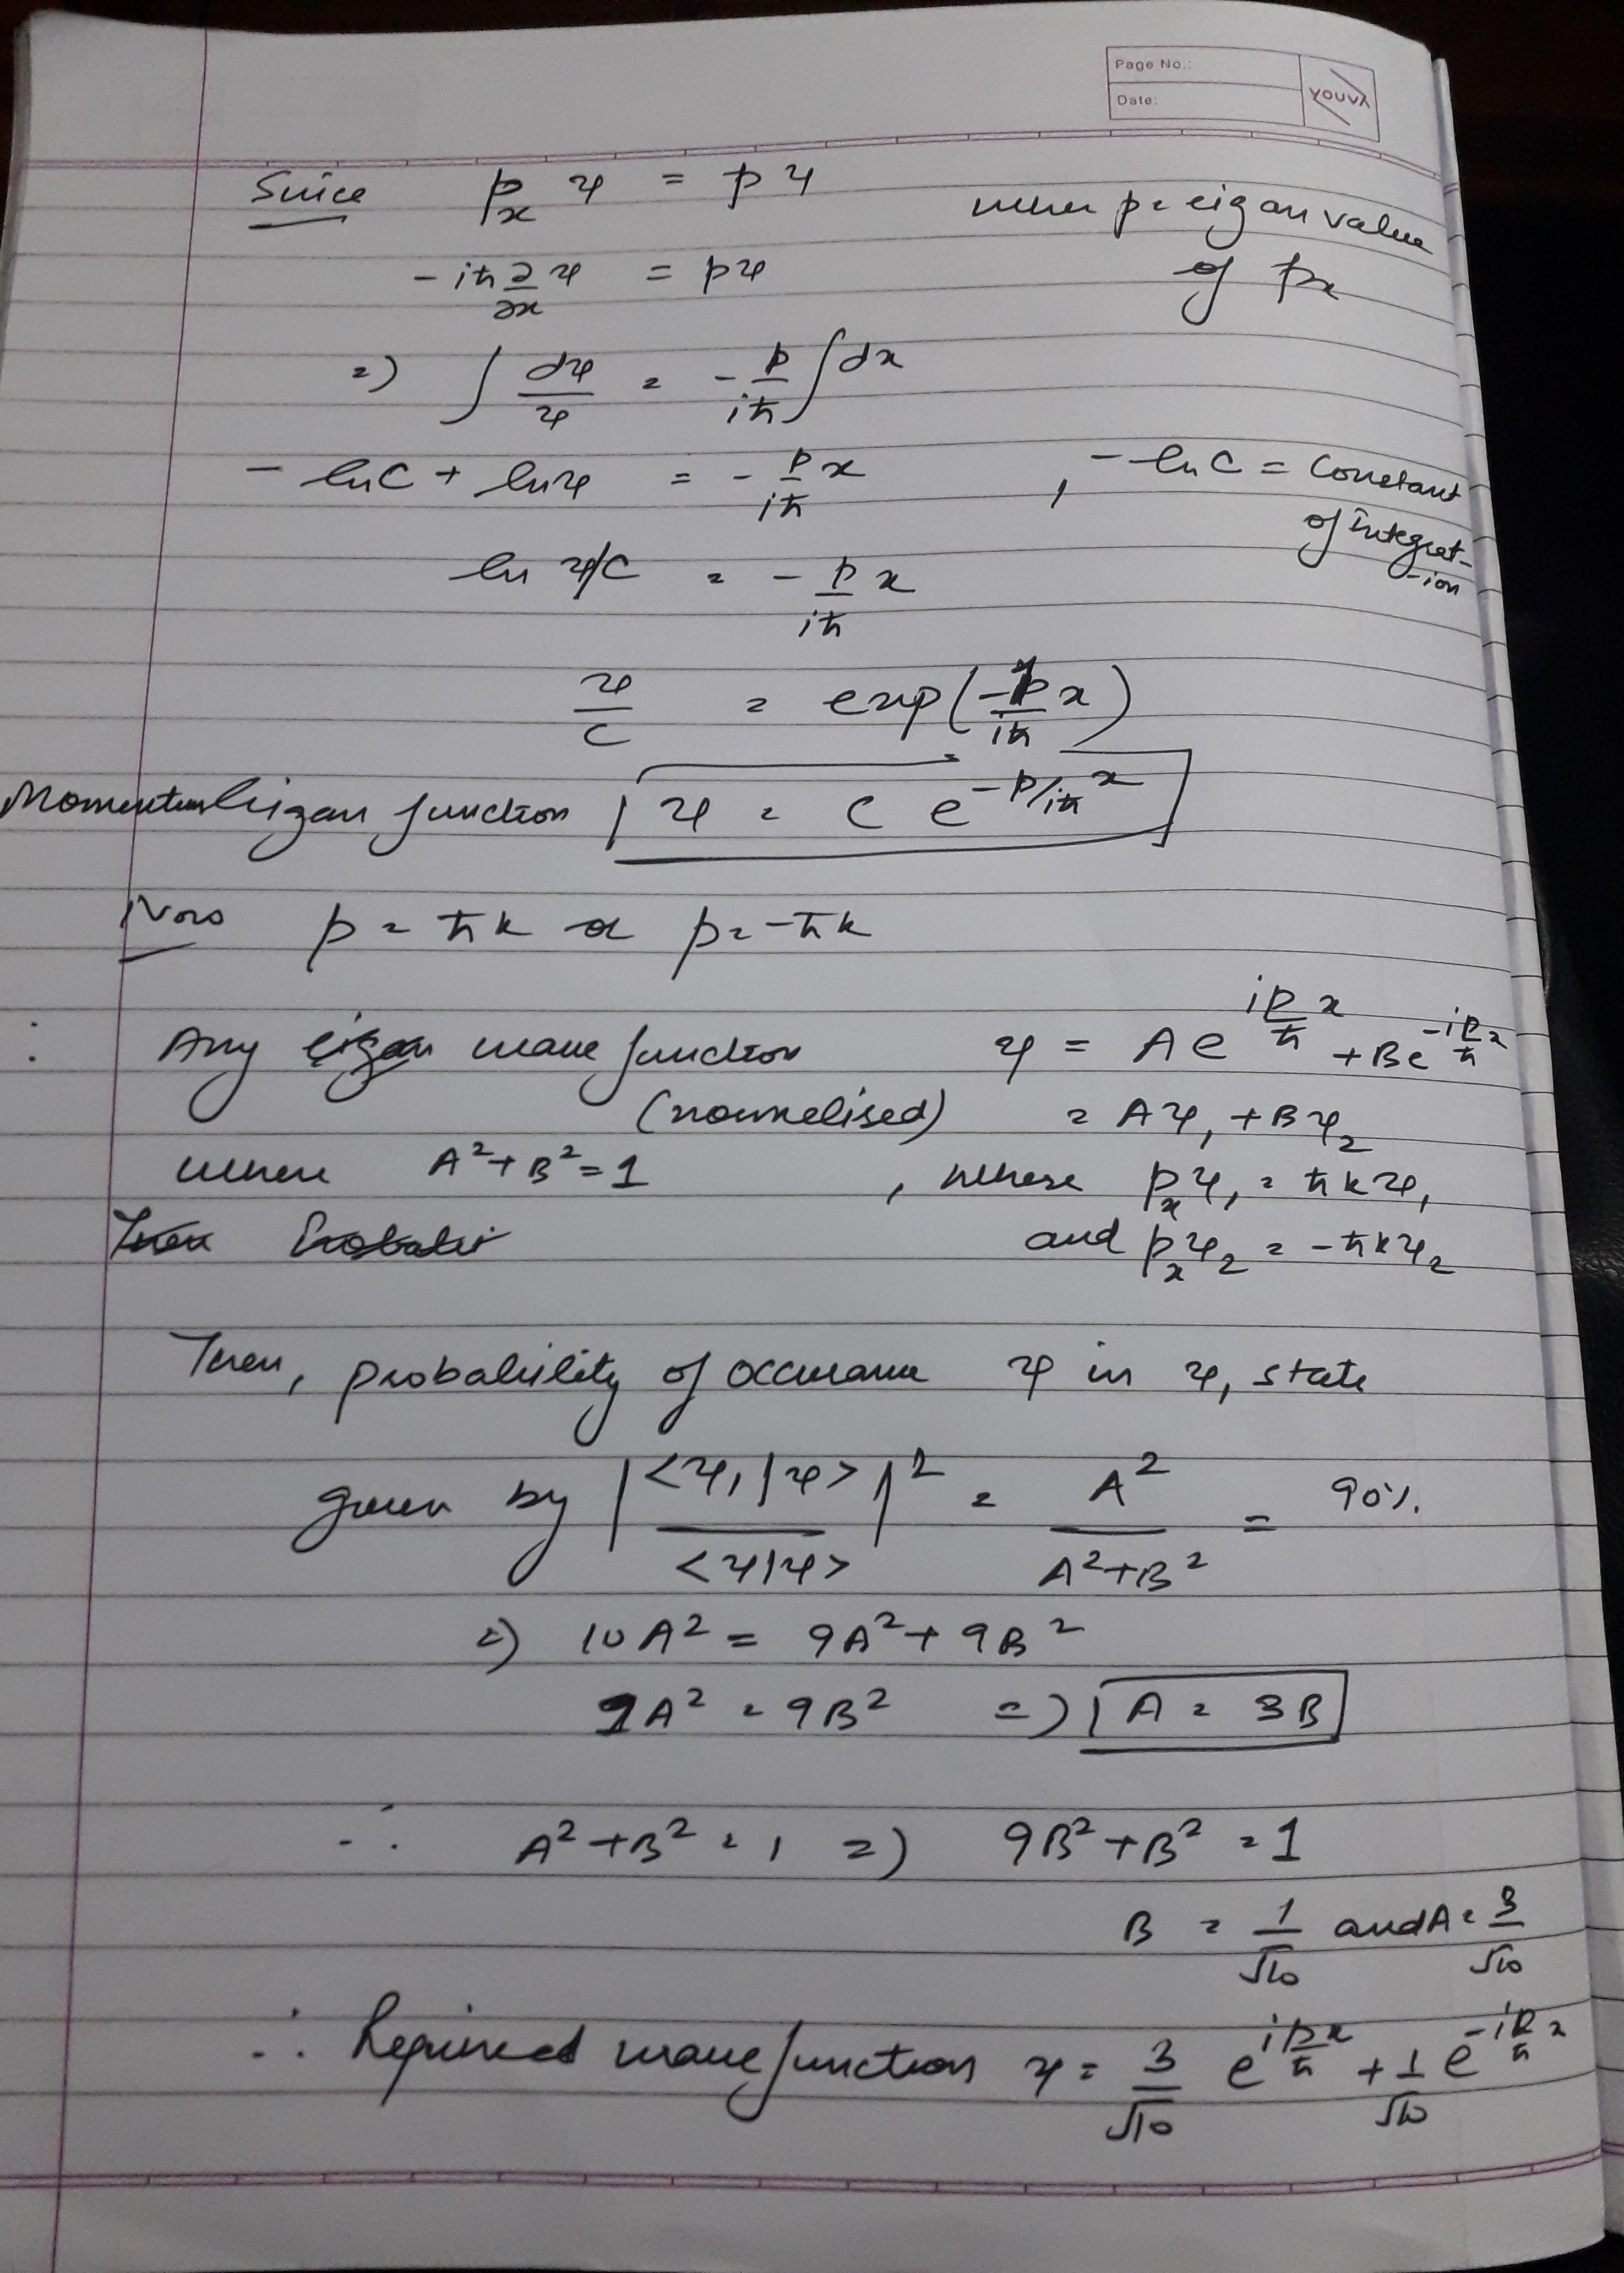 Page No.:
Date:
YOUVA
Since pₓ ψ = p ψ where p = eigan value of pₓ
-iħ ∂/∂x ψ = pψ
=) ∫ dψ/ψ = - p/iħ ∫dx
- lnC + lnψ = - p/iħ x , - lnC = Constant of integrat-ion
ln ψ/C = - p/iħ x
ψ/C = exp(-p/iħ x)
Momentum Eigan function ψ = C e^(-p/iħ x)
Now p = ħk or p = -ħk
∴ Any eigan wave function ψ = A e^(ip/ħ x) + B e^(-ip/ħ x)
(normelised) = Aψ₁ + Bψ₂
where A² + B² = 1 , where pₓψ₁ = ħkψ₁
and pₓψ₂ = -ħkψ₂
Then, probability of occurance ψ in ψ₁ state
given by |<ψ₁|ψ>/<ψ|ψ>|² = A²/(A²+B²) = 90%
=) 10A² = 9A² + 9B²
1A² = 9B² =) A = 3B
∴ A² + B² = 1 =) 9B² + B² = 1
B = 1/√10 and A = 3/√10
∴ Required wave function ψ = 3/√10 e^(ipx/ħ) + 1/√10 e^(-ip/ħ x)